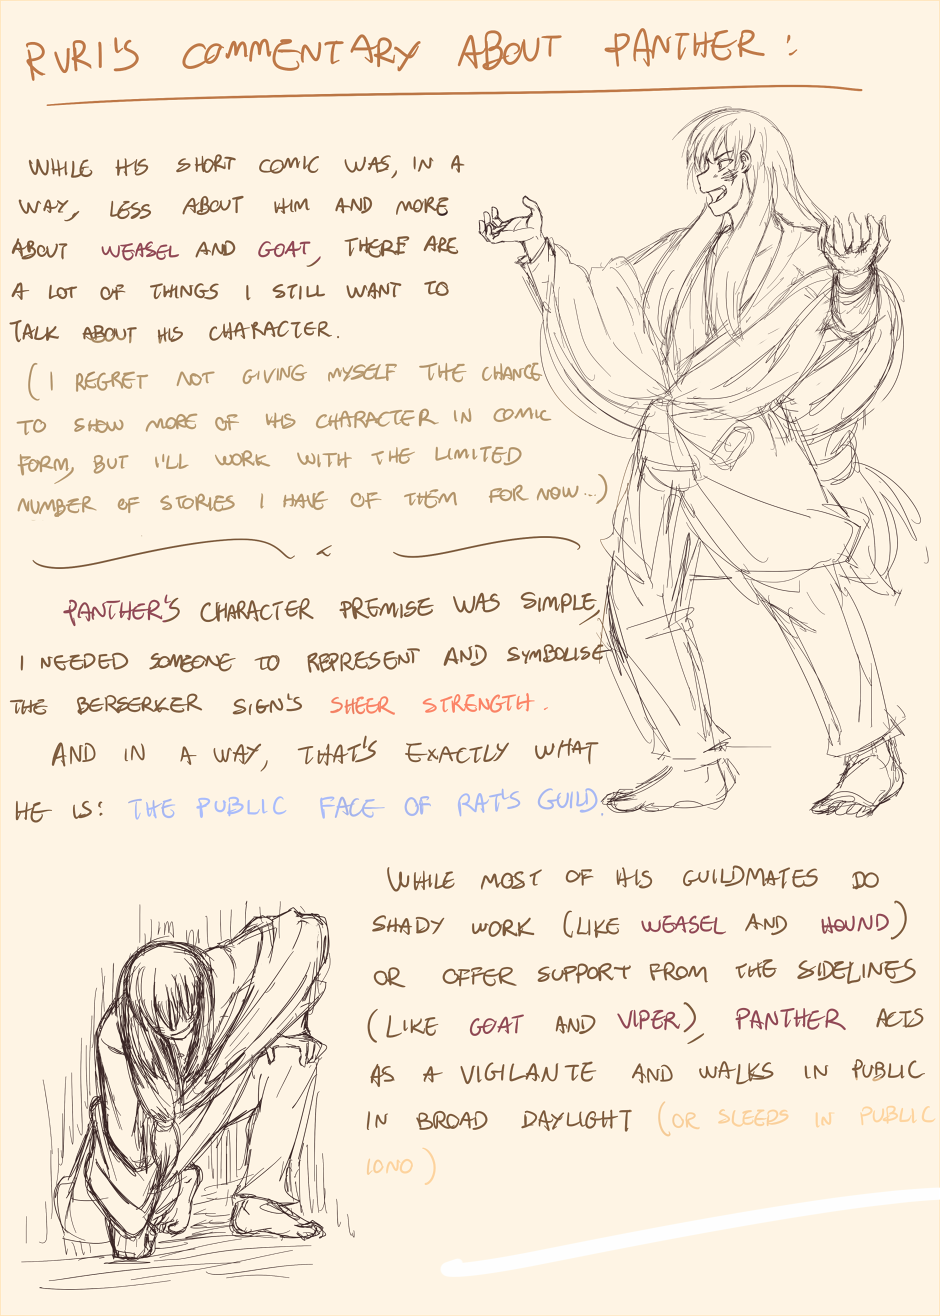 RURI'S COMMENTARY ABOUT PANTHER:
WHILE HIS SHORT COMIC WAS, IN A
WAY, LESS ABOUT HIM AND MORE
ABOUT WEASEL AND GOAT, THERE ARE
A LOT OF THINGS I STILL WANT TO
TALK ABOUT HIS CHARACTER.
(I REGRET NOT GIVING MYSELF THE CHANCE
TO SHOW MORE OF HIS CHARACTER IN COMIC
FORM, BUT I'LL WORK WITH THE LIMITED
NUMBER OF STORIES I HAVE OF THEM FOR NOW...)
PANTHER'S CHARACTER PREMISE WAS SIMPLE,
I NEEDED SOMEONE TO REPRESENT AND SYMBOLISE
THE BERSERKER SIGN'S SHEER STRENGTH.
AND IN A WAY, THAT'S EXACTLY WHAT
HE IS: THE PUBLIC FACE OF RAT'S GUILD.
WHILE MOST OF HIS GUILDMATES DO
SHADY WORK (LIKE WEASEL AND HOUND)
OR OFFER SUPPORT FROM THE SIDELINES
(LIKE GOAT AND VIPER), PANTHER ACTS
AS A VIGILANTE AND WALKS IN PUBLIC
IN BROAD DAYLIGHT (OR SLEEPS IN PUBLIC
IONO)